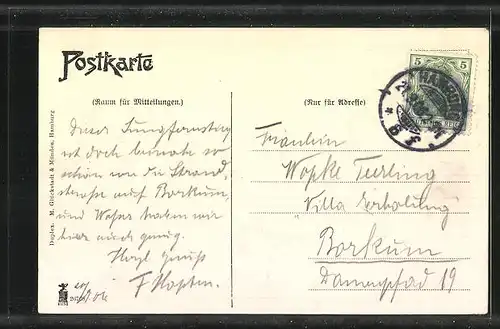 Postkarte
(Raum für Mitteilungen.)
(Nur für Adresse)
5 5
HAMBURG
Dieser Jungfernstieg
ist doch beinahe so
schön wie die Strand-
straße auf Borkum,
und Wasser haben wir
hier auch genug.
Herzl. Gruß
F
06
Fräulein
Wopke Teerling
Villa Erholung
Borkum
Damenpfad 19
Duplex. M. Glückstadt & Münden, Hamburg